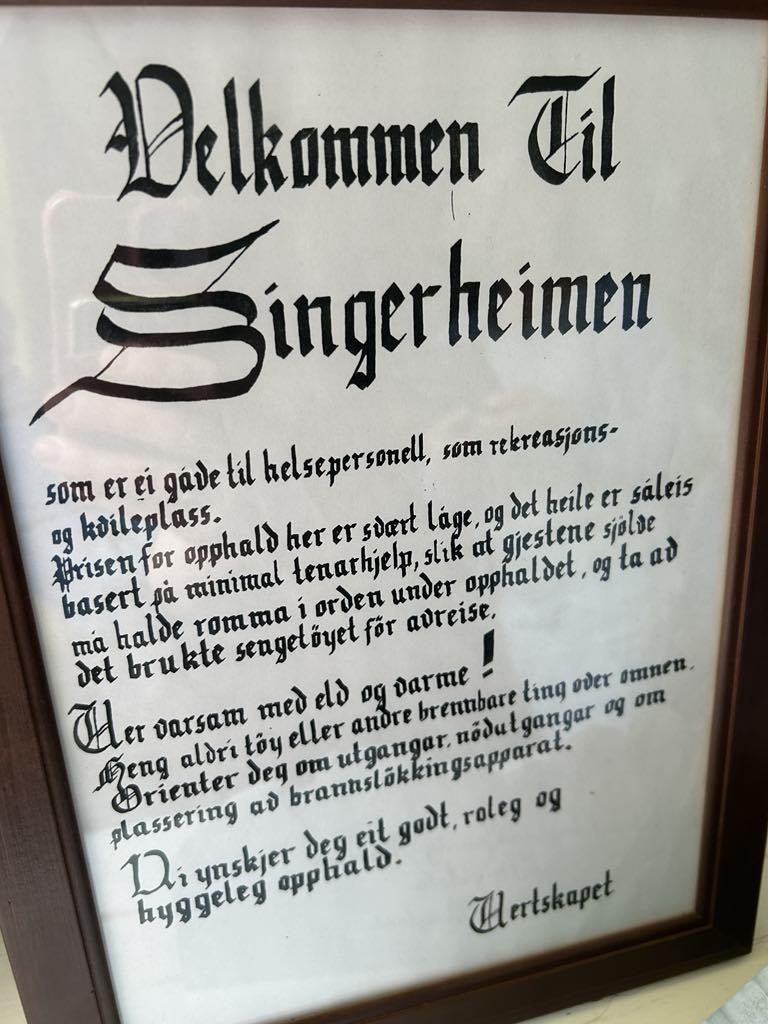 Velkommen Til
Singerheimen
som er ei gåve til helsepersonell, som rekreasjons-
og kvileplass.
Prisen for opphald her er svært låge, og det heile er såleis
basert på minimal tenarhjelp, slik at gjestene sjølve
må halde romma i orden under opphaldet, og ta av
det brukte sengetöyet för avreise.
Ver varsam med eld og varme!
Heng aldri töy eller andre brennbare ting over omnen.
Orienter deg om utgangar, nödutgangar og om
plassering av brannslökkingsapparat.
Vi ynskjer deg eit godt, roleg og
hyggeleg opphald.
Vertskapet